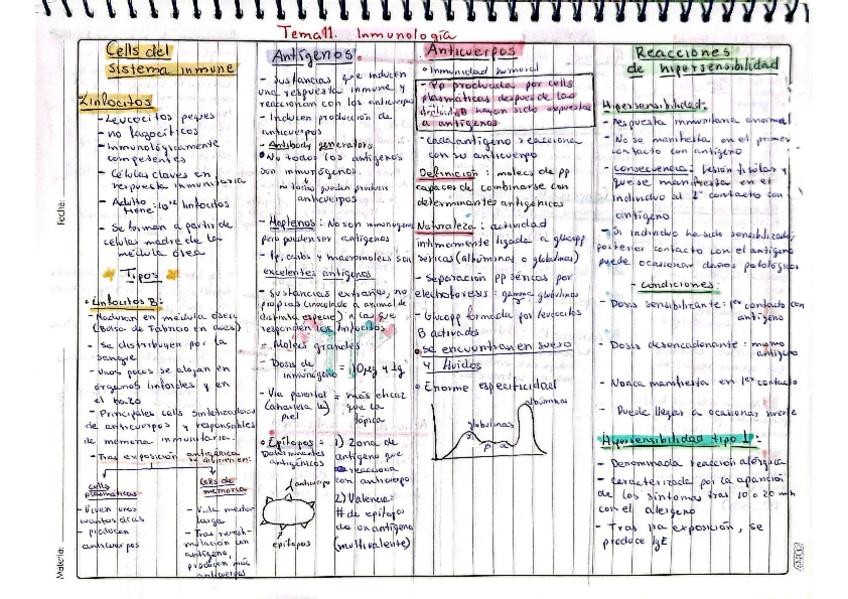 Tema 11. Inmunología
Cells del
sistema inmune
Linfocitos
- Leucocitos peques
- no fagocíticos
- inmunológicamente
competentes
- Células claves en
respuesta inmunitaria
- Adulto
tiene: 10¹² linfocitos
- Se forman a partir de
células madre de la
médula ósea
Tipos
• Linfocitos B:
- Maduran en médula ósea
(Bolsa de Fabricio en aves)
- Se distribuyen por la
sangre
- unos pocos se alojan en
órganos linfoides y en
el bazo
- Principales cells sintetizadoras
de anticuerpos y responsables
de memoria inmunitaria.
- Tras exposición antigénica
se dividen en:
cells
plasmáticas
- Viven unos
cuantos días
- producen
anticuerpos
Cells de
memoria
- Vida media
larga
- Tras
antígeno,
producen más
anticuerpos
Antígenos
- Sustancias que inducen
una respuesta inmune y
reaccionan con los anticuerpos
- Inducen producción de
anticuerpos
- Antibody generators
• No todos los antígenos
son inmunógenos
↳ no todos pueden producir
anticuerpos
- Haptenos: No son inmunógenos
pero pueden ser antígenos
- Pp, carbs y macromolecs son
excelentes antígenos
- Sustancias extrañas, no
propias (inoculado a animal de
distinta especie) a las que
responden los linfocitos
- Molecs grandes
- Dosis de
inmunógeno = 10 µg y 1g
- Vía parental = más eficaz
(atraviesa la que la
piel tópica
• Epítopos = 1) Zona de
Determinantes antígeno que
antigénicos reacciona
con anticuerpo
anticuerpo
2) Valencia:
# de epítopos
de un antígeno
(multivalente)
epítopos
Anticuerpos
• Inmunidad humoral
- Pp producidas por cells
plasmáticas después de las
linfocitos B hayan sido expuestas
a antígenos
- cada antígeno reacciona
con su anticuerpo
Definición: molecs de pp
capaces de combinarse con
determinantes antigénicos
Naturaleza: actividad
íntimamente ligada a glucopp
séricas (albúminas o globulinas)
- Separación pp séricas por
electroforesis: gamma globulinas
- Glucopp formada por leucocitos
B activados
• se encuentran en suero
y fluidos
• Enorme especificidad
albúminas
globulinas
α β γ
Reacciones
de hipersensibilidad
Hipersensibilidad:
- Respuesta inmunitaria anormal
- No se manifiesta en el primer
contacto con antígeno
- Consecuencia: Lesión tisular
que se manifiesta en el
individuo al 2º contacto con
antígeno
- Si individuo ha sido sensibilizado,
posterior contacto con el antígeno
puede ocasionar daños patológicos
- condiciones:
- Dosis sensibilizante: 1er contacto con
antígeno
- Dosis desencadenante: mismo
antígeno
- Nunca manifiesta en 1er contacto
- Puede llegar a ocasionar muerte
Hipersensibilidad tipo I:
- Denominada reacción alérgica
- Caracterizada por la aparición
de los síntomas tras 10 o 20 mn
con el alérgeno
- Tras 1ra exposición, se
produce IgE
Fecha:
Materia: